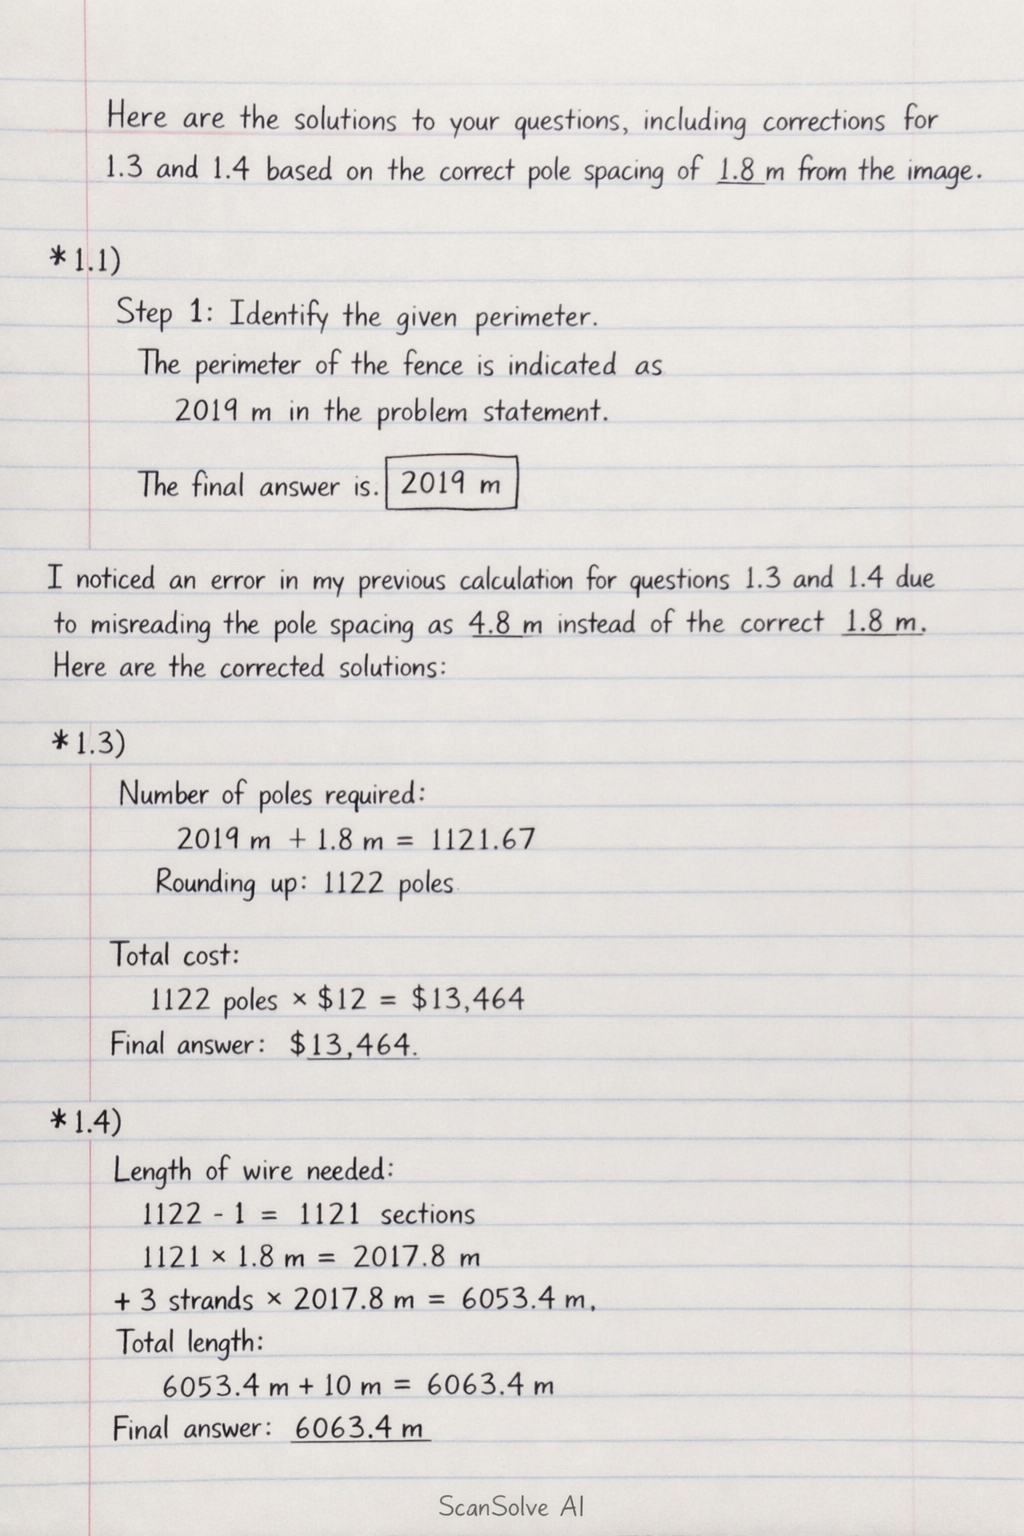 Here are the solutions to your questions, including corrections for
1.3 and 1.4 based on the correct pole spacing of 1.8 m from the image.
* 1.1)
Step 1: Identify the given perimeter.
The perimeter of the fence is indicated as
2019 m in the problem statement.
The final answer is. 2019 m
I noticed an error in my previous calculation for questions 1.3 and 1.4 due
to misreading the pole spacing as 4.8 m instead of the correct 1.8 m.
Here are the corrected solutions:
* 1.3)
Number of poles required:
2019 m + 1.8 m = 1121.67
Rounding up: 1122 poles
Total cost:
1122 poles × $12 = $13,464
Final answer: $13,464.
* 1.4)
Length of wire needed:
1122 - 1 = 1121 sections
1121 × 1.8 m = 2017.8 m
+ 3 strands × 2017.8 m = 6053.4 m.
Total length:
6053.4 m + 10 m = 6063.4 m
Final answer: 6063.4 m
ScanSolve AI